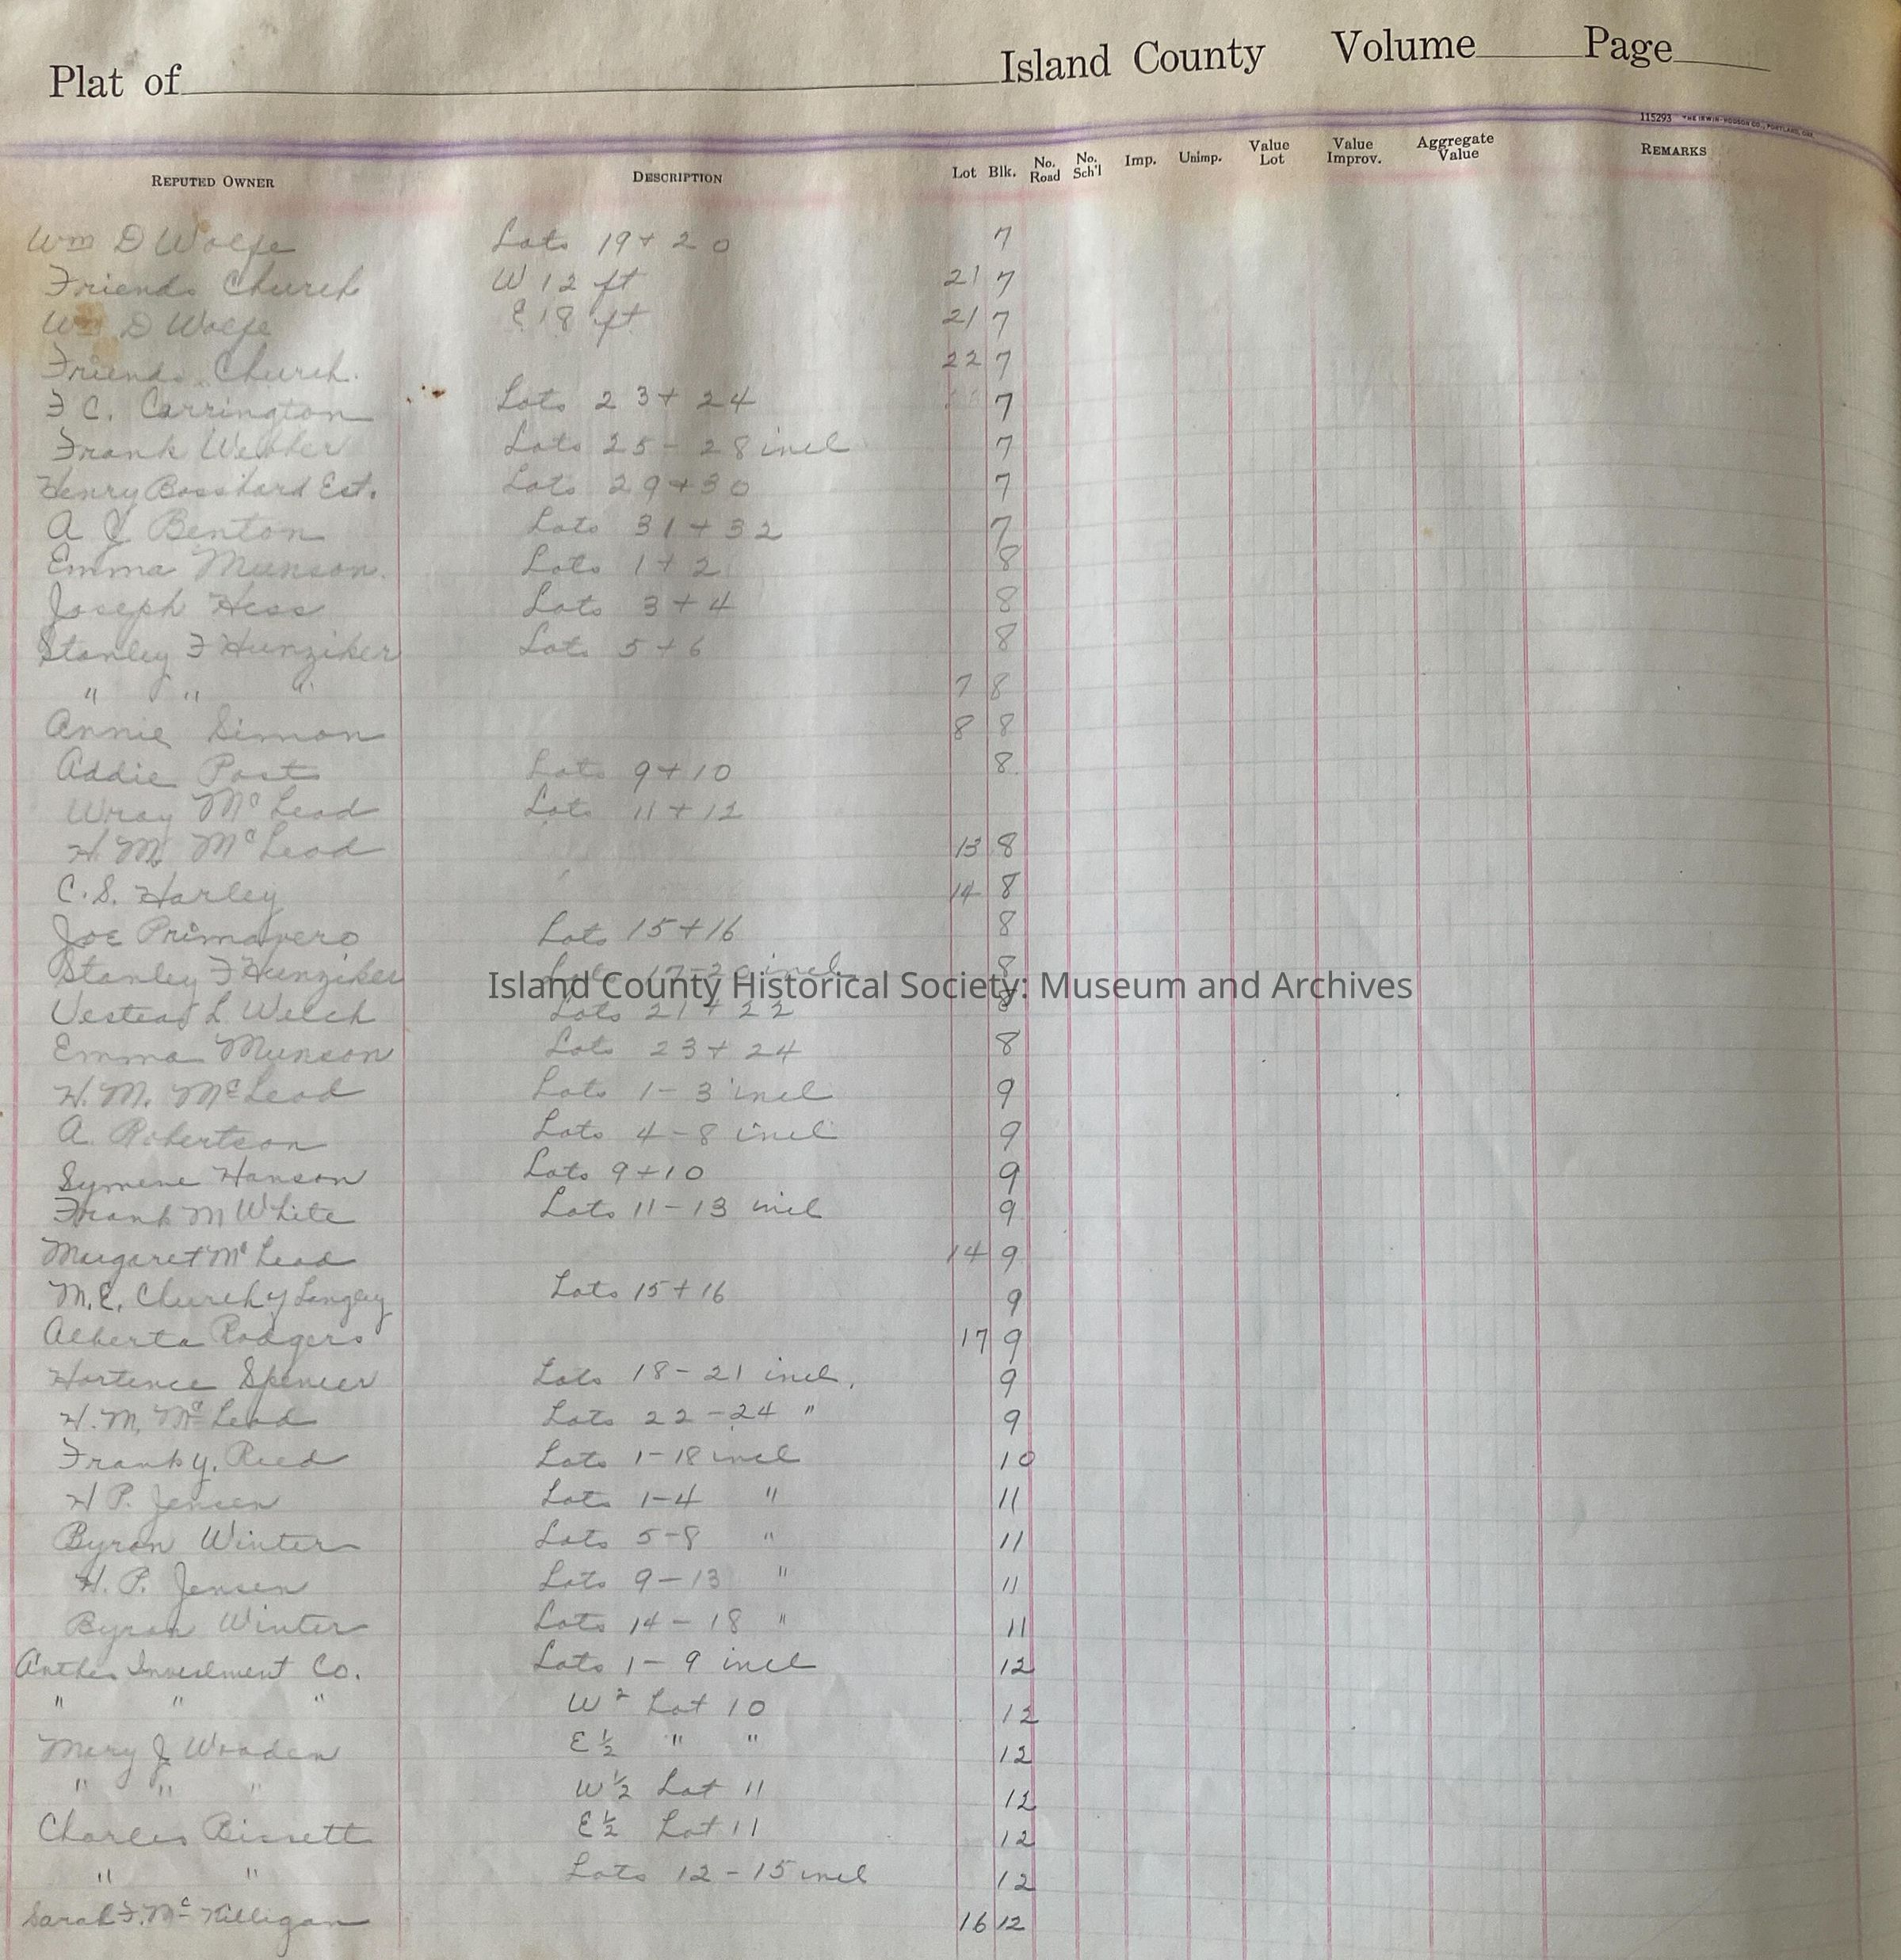 Plat of Island County Volume Page
115293 THE IRWIN-HODSON CO., PORTLAND, ORE.
REPUTED OWNER DESCRIPTION Lot Blk. No. Road No. Sch'l Imp. Unimp. Value Lot Value Improv. Aggregate Value REMARKS
Wm D Wolfe Lots 19 + 20 7
Friends Church W 12 ft 21 7
Wm D Wolfe E 18 ft 21 7
Friends Church. 22 7
F C. Carrington Lots 23 + 24 7
Frank Webber Lots 25 - 28 incl 7
Henry Bosshard Est. Lots 29 + 30 7
A J Benton Lots 31 + 32 7
Emma Munson. Lots 1 + 2 8
Joseph Hess Lots 3 + 4 8
Stanley F Hunziker Lots 5 + 6 8
" " " 7 8
Annie Simon 8 8
Addie Post Lots 9 + 10 8
Wray McLeod Lots 11 + 12
H. M. McLeod 13 8
C. S. Harley 14 8
Joe Primavero Lots 15 + 16 8
Stanley F Hunziker Lots 17 - 20 incl 8
Island County Historical Society: Museum and Archives
L. Welch Lots 21 + 22 8
Emma Munson Lots 23 + 24 8
H. M. McLeod Lots 1 - 3 incl 9
A. Robertson Lots 4 - 8 incl 9
Symene Hanson Lots 9 + 10 9
Frank M White Lots 11 - 13 incl 9
Margaret McLeod 14 9
M. E. Church of Langley Lots 15 + 16 9
Alberta Rodgers 17 9
Hortence Spencer Lots 18 - 21 incl. 9
H. M. McLeod Lots 22 - 24 " 9
Frank y. Reed Lots 1 - 18 incl 10
H P. Jensen Lots 1 - 4 " 11
Byron Winter Lots 5 - 8 " 11
H. P. Jensen Lots 9 - 13 " 11
Byron Winter Lots 14 - 18 " 11
Anthes Investment Co. Lots 1 - 9 incl 12
" " " W 2 Lot 10 12
Mary J Wooden E ½ " " 12
" " " W ½ Lot 11 12
Charles Bissett E ½ Lot 11 12
" " Lots 12 - 15 incl 12
Sarah F. Mc Killigan 16 12